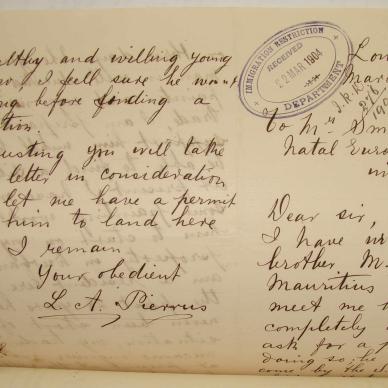 lthy and willing young
I feel sure he wont
before finding a
tion.
usting you will take
letter in consideration
let me have a permit
him to land here
I remain
Your obedient
L. A. Pierrus
IMMIGRATION RESTRICTION
RECEIVED
MAR 1904
DEPARTMENT
I.R.D.
Lon
Marc
To Mr Sm
Natal Euro
Dear sir,
I have wr
brother M.
Mauritius
meet me
completely
ask for a
doing so, he
come by the